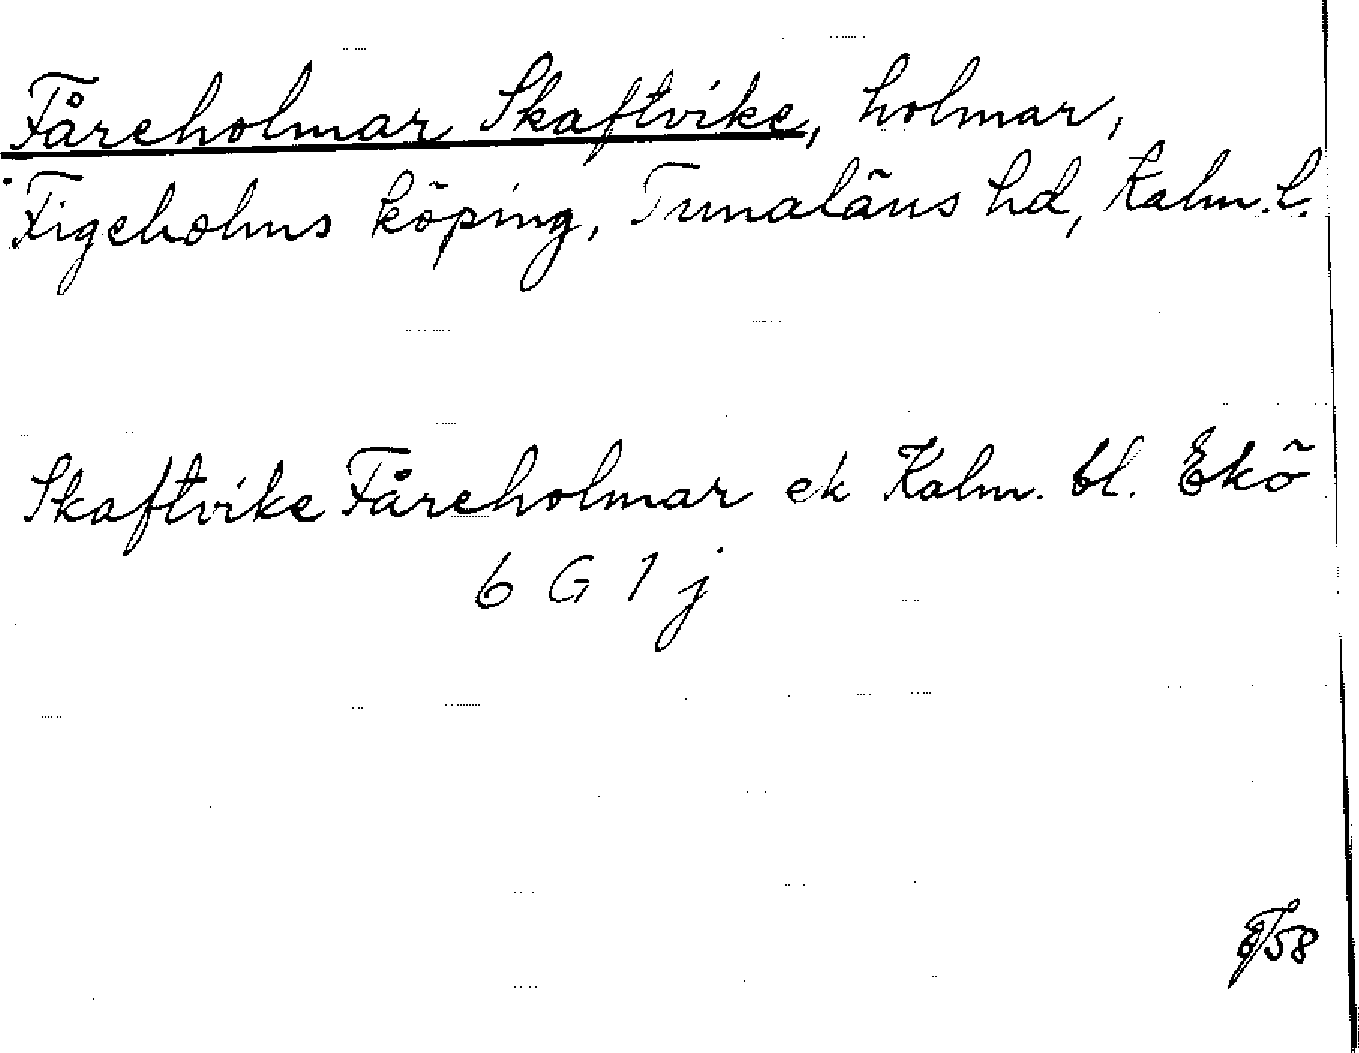 Fåreholmar Skaftvike, holmar,
Figeholms köping, Tunaläns hd, Kalm. l.
Skaftvike Fåreholmar ek Kalm. bl. Ekö
6 G 1 j